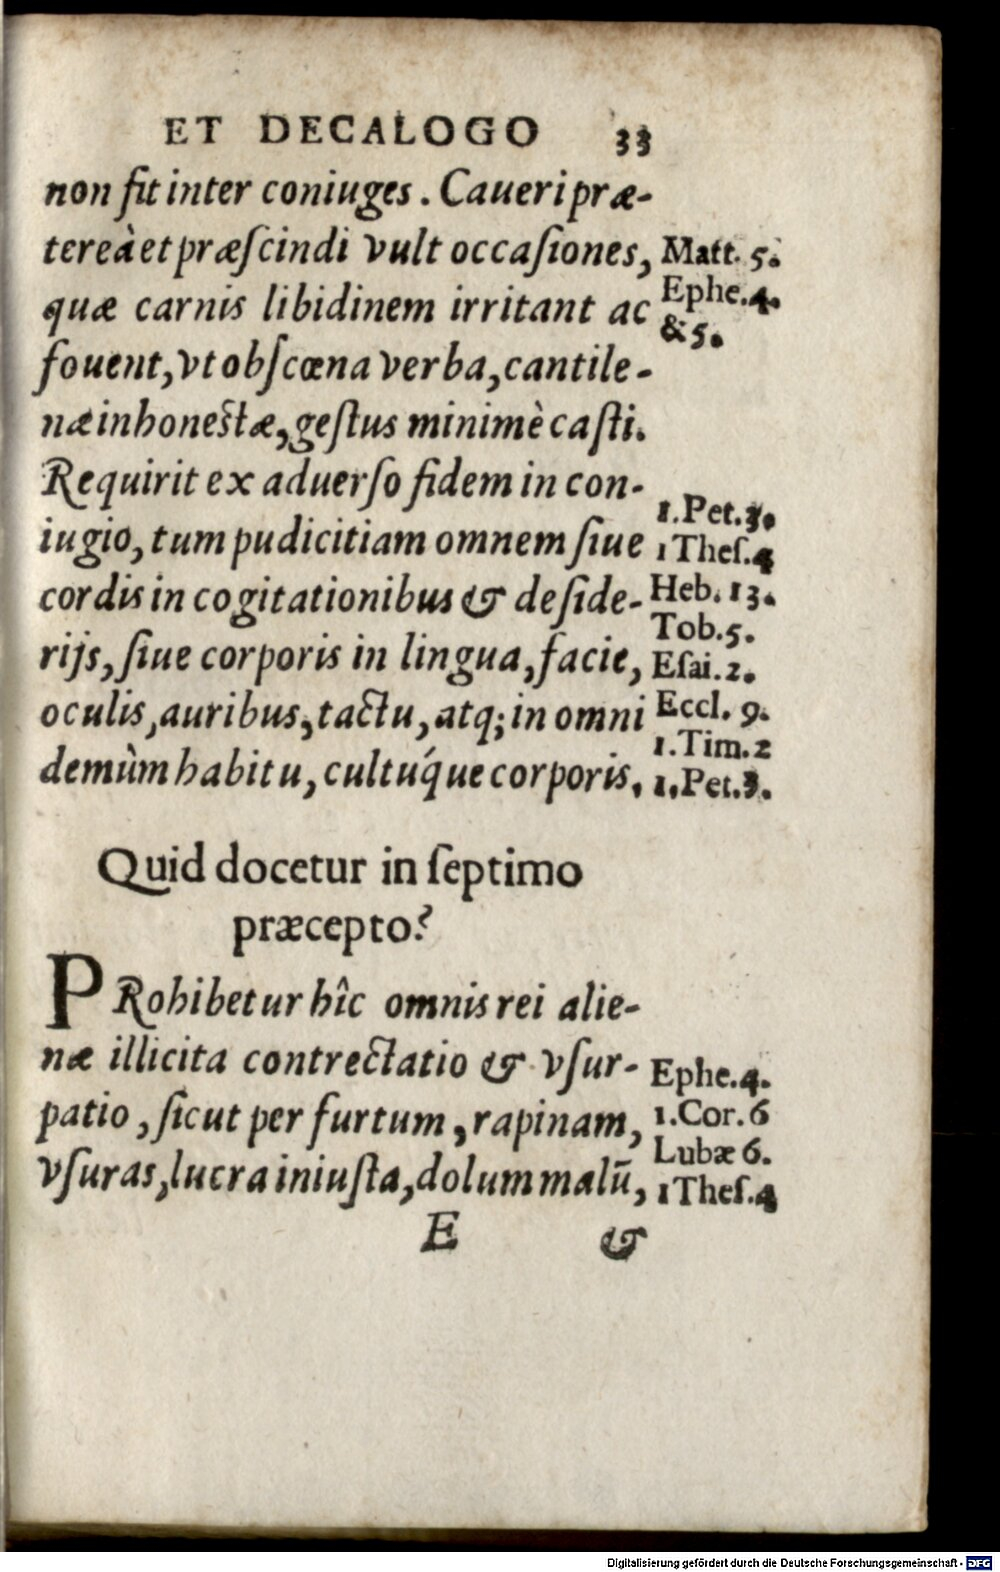 ET DECALOGO 33
non fit inter coniuges. Caueri præ-
tereà et præſcindi vult occaſiones,
quæ carnis libidinem irritant ac
fouent, vt obſcœna verba, cantile-
næ inhonestæ, geſtus minimè caſti.
Requirit ex aduerſo fidem in con-
iugio, tum pudicitiam omnem ſiue
cordis in cogitationibus & deſide-
rijs, ſiue corporis in lingua, facie,
oculis, auribus, tactu, atq; in omni
demùm habitu, cultúque corporis.
Matt. 5.
Ephe. 4.
& 5.
1. Pet. 3.
1 Theſ. 4
Heb. 13.
Tob. 5.
Eſai. 2.
Eccl. 9.
1. Tim. 2
1. Pet. 3.
Quid docetur in ſeptimo
præcepto?
PRohibetur hîc omnis rei alie-
næ illicita contrectatio & vſur-
patio, ſicut per furtum, rapinam,
vſuras, lucra iniuſta, dolum malū,
Ephe. 4.
1. Cor. 6
Lubæ 6.
1 Theſ. 4
E &
Digitalisierung gefördert durch die Deutsche Forschungsgemeinschaft - DFG